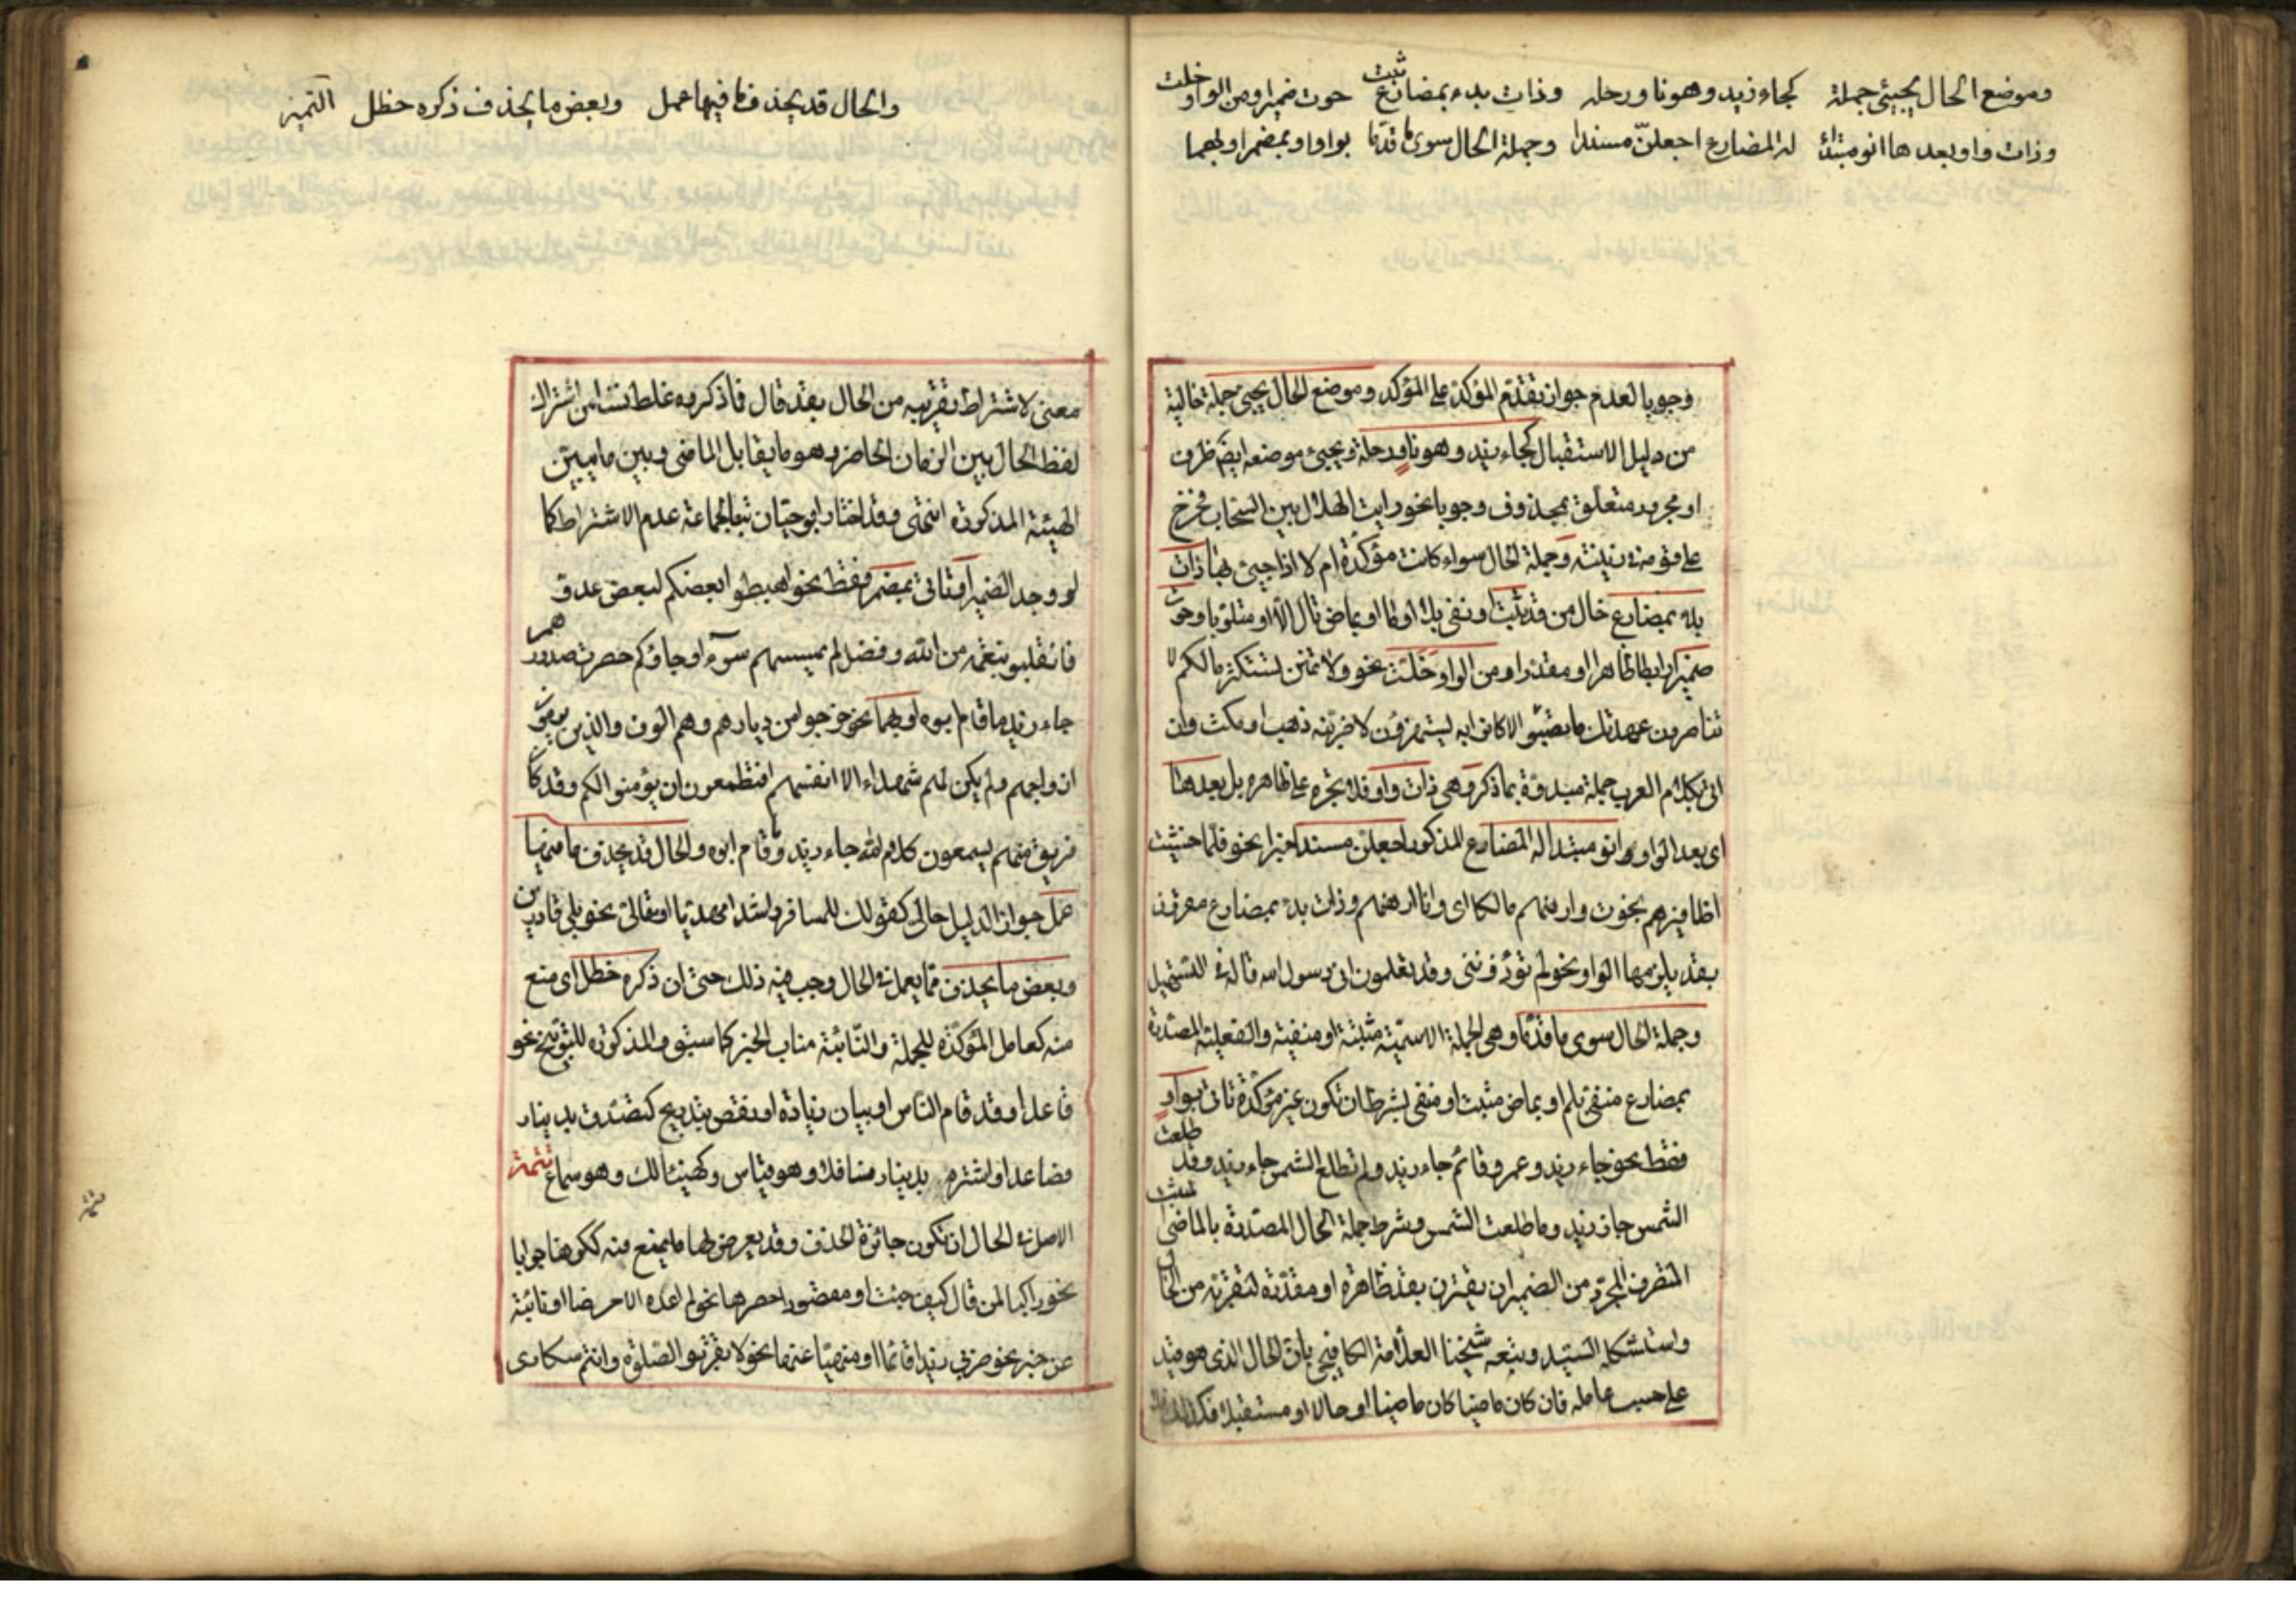 وموضع الحال يجيئ جملة كجاء زيد وهو ناو رحله وذات بدء بمضارع ثبت حوت ضميرا ومن الواو خلت
وذات واو بعدها انو مبتدأ له المضارع اجعلن مسندا وجملة الحال سوى ما قدما بواو او بمضمر او بهما
وجوبا لعدم جواز تقدم المؤكد على المؤكد وموضع الحال يجيئ جملة خالية
من دليل الاستقبال كجاء زيد وهو ناو رحلة ويجيئ موضعه ايضا ظرف
او مجرور متعلق بمحذوف وجوبا نحو رايت الهلال بين السحاب فخرج
على قومه في زينته وجملة الحال سواء كانت مؤكدة ام لا اذا جيئ بها ذات
بدء بمضارع خال من قد ثبت او نفي بلا او ما او بماض تال الا او متلو باو حوت
ضميرا رابطا ظاهرا او مقدرا ومن الواو خلت نحو ولا تمنن تستكثر مالكم لا
تناصرون عهدتك ما تصبو الا كانوا به يستهزؤن لاضربنه ذهب او مكث وان
اتى بكلام العرب جملة مبدوة بما ذكر وهي ذات واو فلا تجره على ظاهره بل بعدها
اى بعد الواو انو مبتدا له المضارع المذكور اجعلن مسندا خبرا نحو فلما خشيت
اظافيرهم نجوت وارهنهم مالكا اى وانا ارهنهم وذات بدء بمضارع مقرون
بقد يلزمها الواو نحو لم تؤذونني وقد تعلمون انى رسول الله قاله في التسهيل
وجملة الحال سوى ما قدما وهي الجملة الاسمية مثبتة او منفية والفعلية المصدرة
بمضارع منفي بلم او بماض مثبت او منفي بشرط ان تكون غير مؤكدة تاتى بواو
فقط نحو جاء زيد وعمرو قائم جاء زيد ولم تطلع الشمس جاء زيد وقد طلعت
الشمس جاء زيد وما طلعت الشمس وشرط جملة الحال المصدرة بالماضي المثبت
المتصرف المجرد من الضمير ان يقترن بقد ظاهرة او مقدرة لتقربه من الحال
واستشكله السيد وتبعه شيخنا العلامة الكافيجي بان الحال الذى هو قيد
على حسب عامله فان كان ماضيا كان ماضيا او حالا او مستقبلا فكذلك
والحال قد يحذف ما فيها عمل وبعض ما يحذف ذكره حظل التمييز
معنى لاشتراط تقريبه من الحال بقد قال فما ذكروه غلط نشا من اشتراك
لفظ الحال بين الزمان الحاضر وهو ما يقابل الماضي وبين ما يبين
الهيئة المذكورة انتهى وقد اختار ابو حيان تبعا لجماعة عدم الاشتراط كما
لو وجد الضمير او تاتى بمضمر فقط نحو اهبطوا بعضكم لبعض عدو
فانقلبو بنعمة من الله وفضل لم يمسسهم سوء او جاؤكم حصرت صدورهم
جاء زيد ما قام ابوه او بهما نحو خرجوا من ديارهم وهم الوف والذين يرمون
ازواجهم ولم يكن لهم شهداء الا انفسهم افتطمعون ان يؤمنوا لكم وقد كان
فريق منهم يسمعون كلام الله جاء زيد وما قام ابوه والحال قد يحذف ما فيها
عمل جوازا لدليل حالى كقولك للمسافر راشدا مهديا او مقالى نحو بلى قادرين
وبعض ما يحذف مما يعمل في الحال وجب فيه ذلك حتى ان ذكره حظل اى منع
منه كعامل المؤكدة للجملة والنائبة مناب الخبر كما سبق والمذكورة للتوبيخ نحو
قاعدا وقد قام الناس او بيان زيادة او نقص بتدريج كتصدق بدينار
فصاعدا واشتره بدينار فسافلا وهو قياس وكهنيئا لك وهو سماع تتمة
الاصل في الحال ان تكون جائزة الحذف وقد يعرض لها ما يمنع منه ككونها جوابا
نحو راكبا لمن قال كيف جئت او مقصورا حصرها نحو لم اعده الا حرضا او نائبة
عن خبر نحو ضربي زيدا قائما او منهيا عنها نحو لا تقربوا الصلوة وانتم سكارى